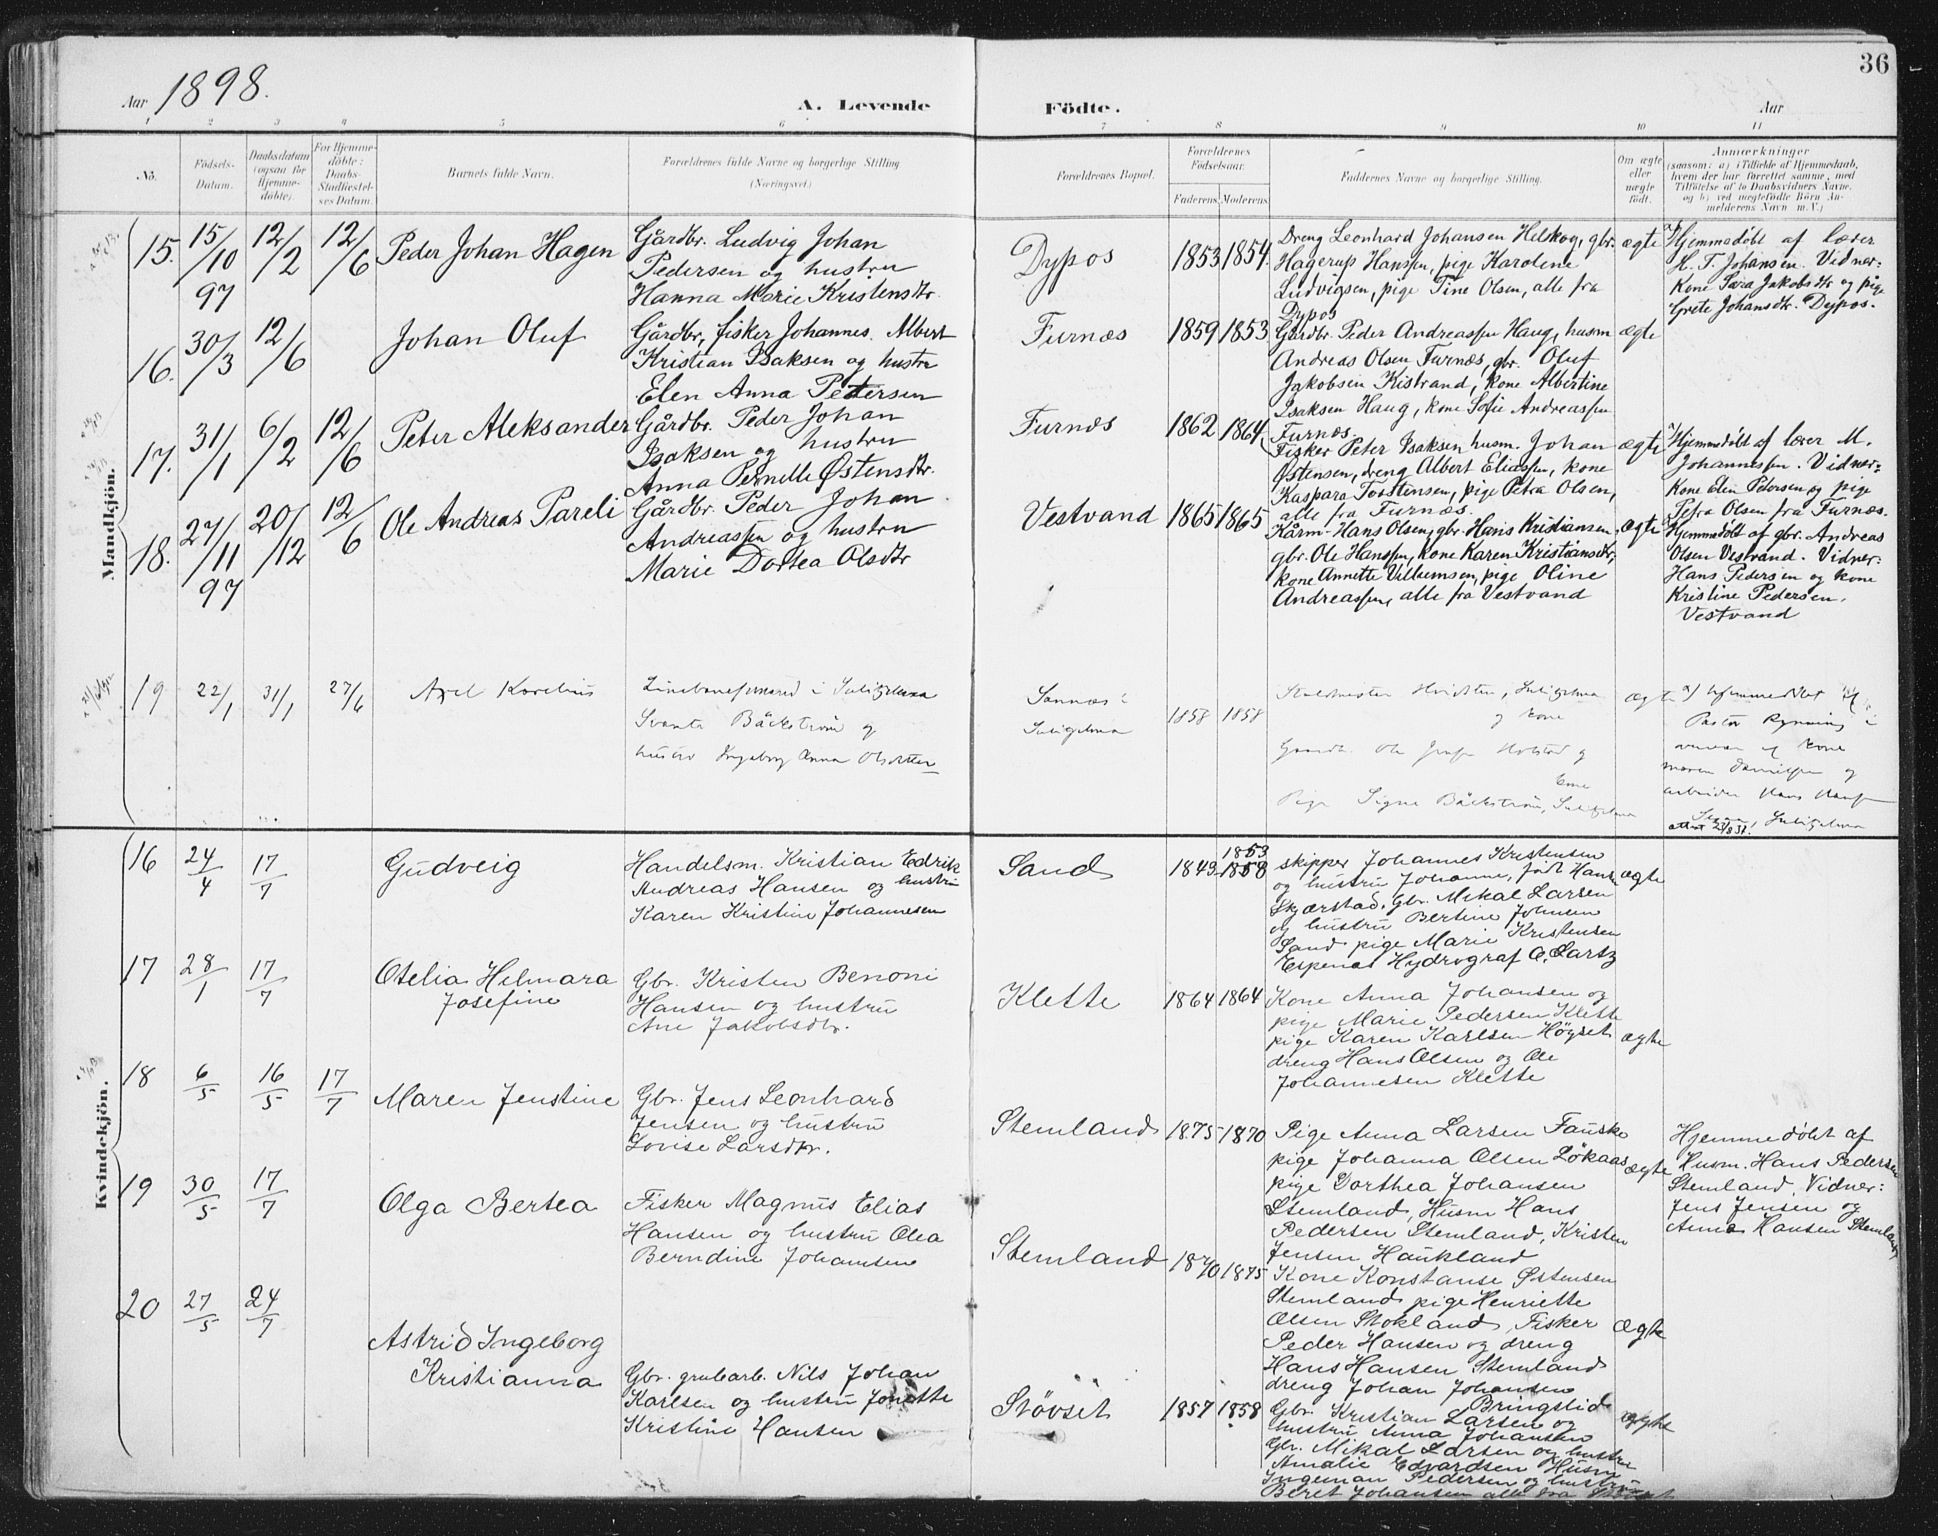 36
Aar 1898.
A. Levende Födte.
Aar
1 2 3 4 5 6 7 8 9 10 11
No.
Födsels-Datum.
Daabsdatum (ogsaa for Hjemme-döbte).
For Hjemme-döbte: Daabs-Stadfæstel-ses Datum.
Barnets fulde Navn.
Forældrenes fulde Navne og borgerlige Stilling (Næringsvei).
Forældrenes Bopæl.
Forældrenes Födselsaar.
Faderens Moderens
Faddernes Navne og borgerlige Stilling.
Om ægte eller uægte födt.
Anmærkninger
(saasom: a) i Tilfælde af Hjemmedaab,
hvem der har forrettet samme, med
Tilföielse af to Daabsvidners Navne,
og b) ved uægtefödte Börn An-
melderens Navn m. V.)
Mandkjön.
15. 15/10 97 12/2 12/6 Peder Johan Hagen
Gårdbr. Ludvig Johan
Pedersen og hustru
Hanna Marie Kristensdtr.
Dypos 1853 1854
Dreng Leonhard Johansen Helskog, gbr.
Hagerup Hanssen, pige Karoline
Ludvigsen, pige Tine Olsen, alle fra
Dypos
ægte
a) Hjemmedøbt af lærer
H. T. Johansen. Vidner:
Kone Sara Jakobsdtr og pige
Grete Johansdtr. Dypos.
16. 30/3 12/6 Johan Oluf
Gårdbr, fisker Johannes Albert
Kristian Isaksen og hustru
Elen Anna Pedersen
Furnæs 1859 1853
Gårdbr. Peder Andreassen Haug, husm
Andreas Olsen Furnæs, gbr. Oluf
Jakobsen Kistrand, kone Albertine
Isaksen Haug, kone Sofie Andreassen
Furnæs.
ægte
17. 31/1 6/2 12/6 Peter Aleksander
Gårdbr. Peder Johan
Isaksen og hustru
Anna Pernelle Østensdtr.
Furnæs 1862 1864
Fisker Peter Isaksen husm. Johan
Østensen, dreng Albert Eliassen, kone
Kaspara Torstensen, pige Petra Olsen,
alle fra Furnæs.
ægte
a) Hjemmedøbt af lærer M.
Johannessen. Vidner:
Kone Elen Pedersen og pige
Petra Olsen fra Furnæs.
18. 27/11 97 20/12 12/6 Ole Andreas Pareli
Gårdbr. Peder Johan
Andreassen og hustru
Marie Dortea Olsdtr
Vestvand 1865 1865
Kårm. Hans Olsen, gbr. Hans Kristiansen
gbr. Ole Hanssen, kone Karen Kristiansdtr,
kone Annette Vilhemsen, pige Oline
Andreassen, alle fra Vestvand
ægte
Hjemmedøbt af gbr. Andreas
Olsen Vestvand. Vidner:
Hans Pedersen og kone
Kristine Pedersen.
Vestvand
19 22/1 31/1 27/6 Axel Kornelius
i Sulitjelma
Svante Bäckström og
hustru Ingeborg Anna Olsdatter
Sannæs i
Sulitjelma
1858 1858
Sulitjelma
og kone
Ole Holstad og
Pige Signe Bäckström, Sulitjelma
ægte
a) Hjemmedöbt af
Pastor Rynning i
og kone
og
arbeider Hans
Sulitjelma
Kvindekjön.
16 24/4 17/7 Gudveig
Handelsm. Kristian Edrik
Andreas Hansen og hustru
Karen Kristine Johannesen
Sand 1843 1858 1853
skipper Johannes Kristensen
og hustru Johanne, født Hansen
Skjærstad. Gbr. Mikal Larsen
og hustru Bertine Johnsen
Sand pige Marie Kristensen
Espenæs Hydrograf C. Lartz
ægte
17 28/1 17/7 Otelia Helmara
Josefine
Gbr. Kristen Benoni
Hansen og hustru
Ane Jakobsdtr.
Klette 1864 1864
Kone Anna Johansen og
pige Marie Pedersen Klette
pige Karen Karlsen Höyset
dreng Hans Olsen og Ole
Johannesen Klette
ægte
18 6/5 16/5 17/7 Maren Jenstine
Gbr. Jens Leonhard
Jensen og hustru
Lovise Larsdtr.
Stemland 1875 1870
Pige Anna Larsen Fauske
pige Johanna Olsen Lökaas
pige Dorthea Johansen
Stemland, Husm Hans
Pedersen Stemland, Kristen
Jensen Haukland
ægte
Hjemmedöbt af
Husm. Hans Pedersen
Stemland, Vidner:
Jens Jensen og
Anna Hansen Stemland
19 30/5 17/7 Olga Bertea
Fisker Magnus Elias
Hansen og hustru Olea
Berndine Johansen
Stemland 1870 1875
Kone Konstanse Østensen
Stemland, pige Henriette
Olsen Stokland, Fisker
Peder Hansen og dreng
Hans Hansen Stemland
dreng Johan Johansen
Bringslid
ægte
20 27/5 24/7 Astrid Ingeborg
Kristianna
Gbr. grubearb. Nils Johan
Karlsen og hustru Jonette
Kristine Hansen
Stövset 1857 1858
Gbr. Kristian Larsen og
hustru Anna Johansen
Gbr. Mikal Larsen og hustru
Amalie Edvardsen Husm
Ingeman Pedersen og hustru
Beret Johansen alle fra Stövset
ægte